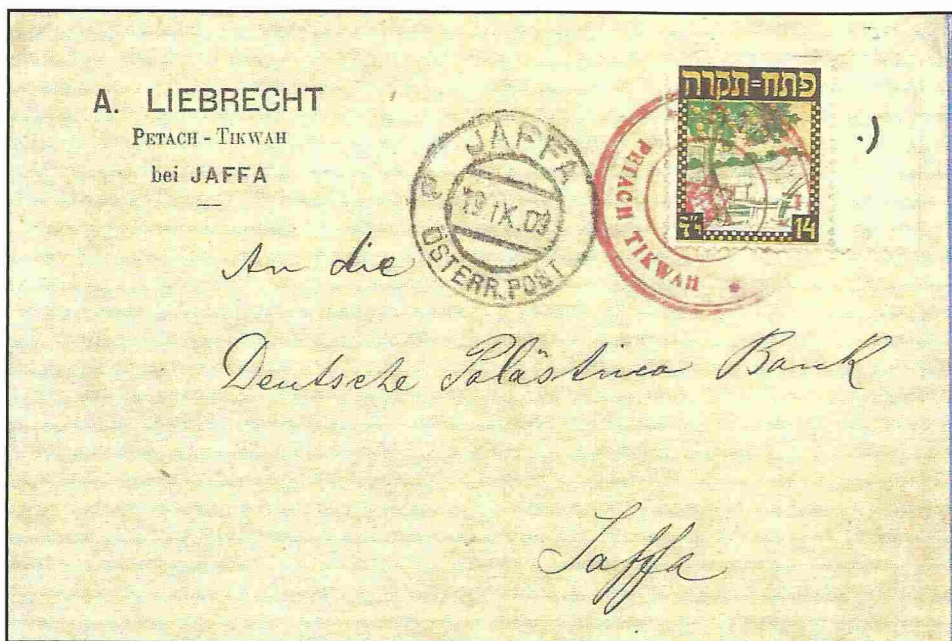 A. LIEBRECHT
PETACH - TIKWAH
bei JAFFA
JAFFA
19 IX. 09
ÖSTERR. POST
PETACH TIKWAH
פתח=תקוה
י״ד
14
An die
Deutsche Palästina Bank
Jaffa